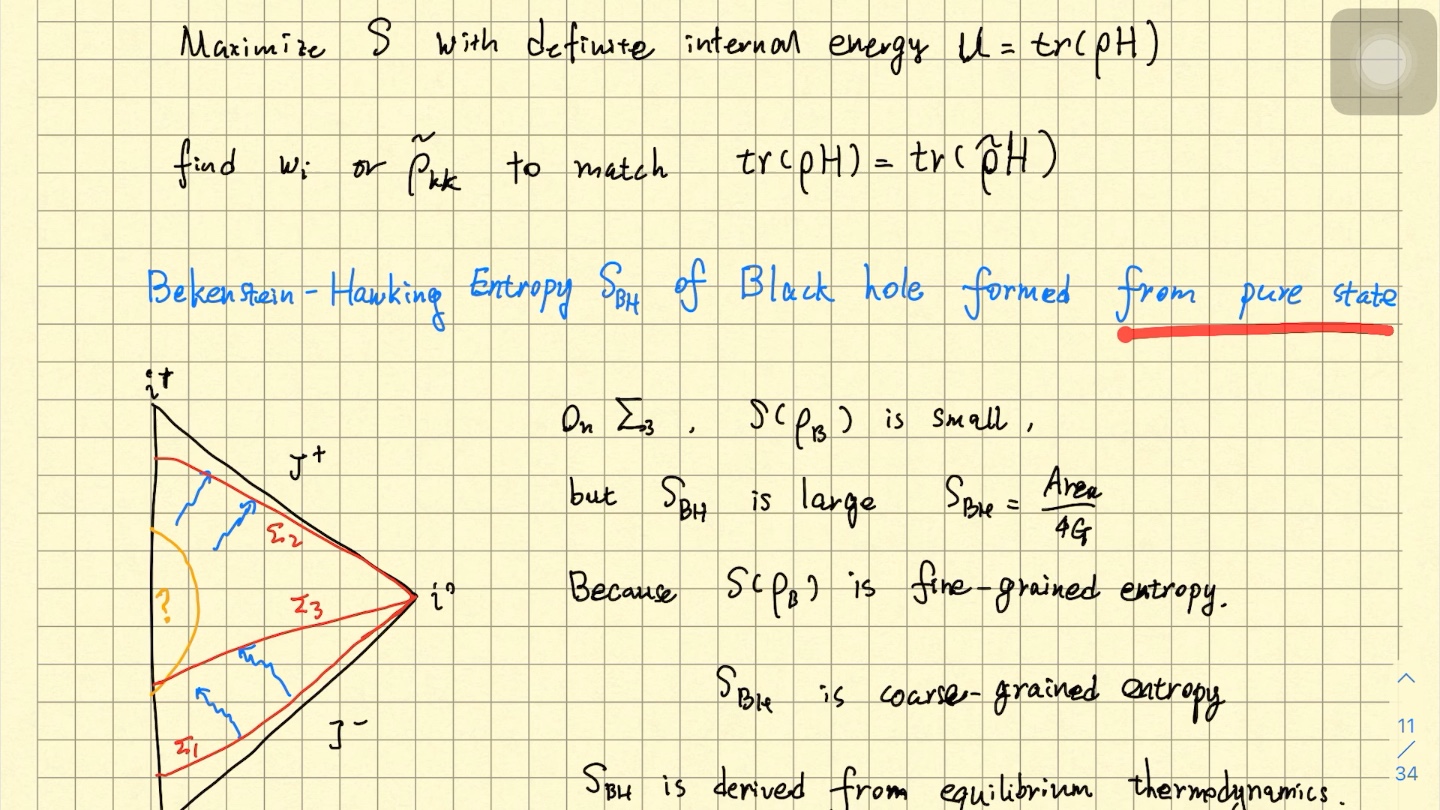 Maximize S with definite internal energy U = tr(ρH)
find wᵢ or ρ̃ₖₖ to match tr(ρH) = tr(ρ̃H)
Bekenstein-Hawking Entropy S_BH of Black hole formed from pure state
i⁺
J⁺
Σ₂
?
Σ₃
i⁰
Σ₁
J⁻
On Σ₃ , S(ρ_B) is small ,
but S_BH is large S_BH = Area/4G
Because S(ρ_B) is fine-grained entropy.
S_BH is coarse-grained entropy
S_BH is derived from equilibrium thermodynamics.
11
/
34